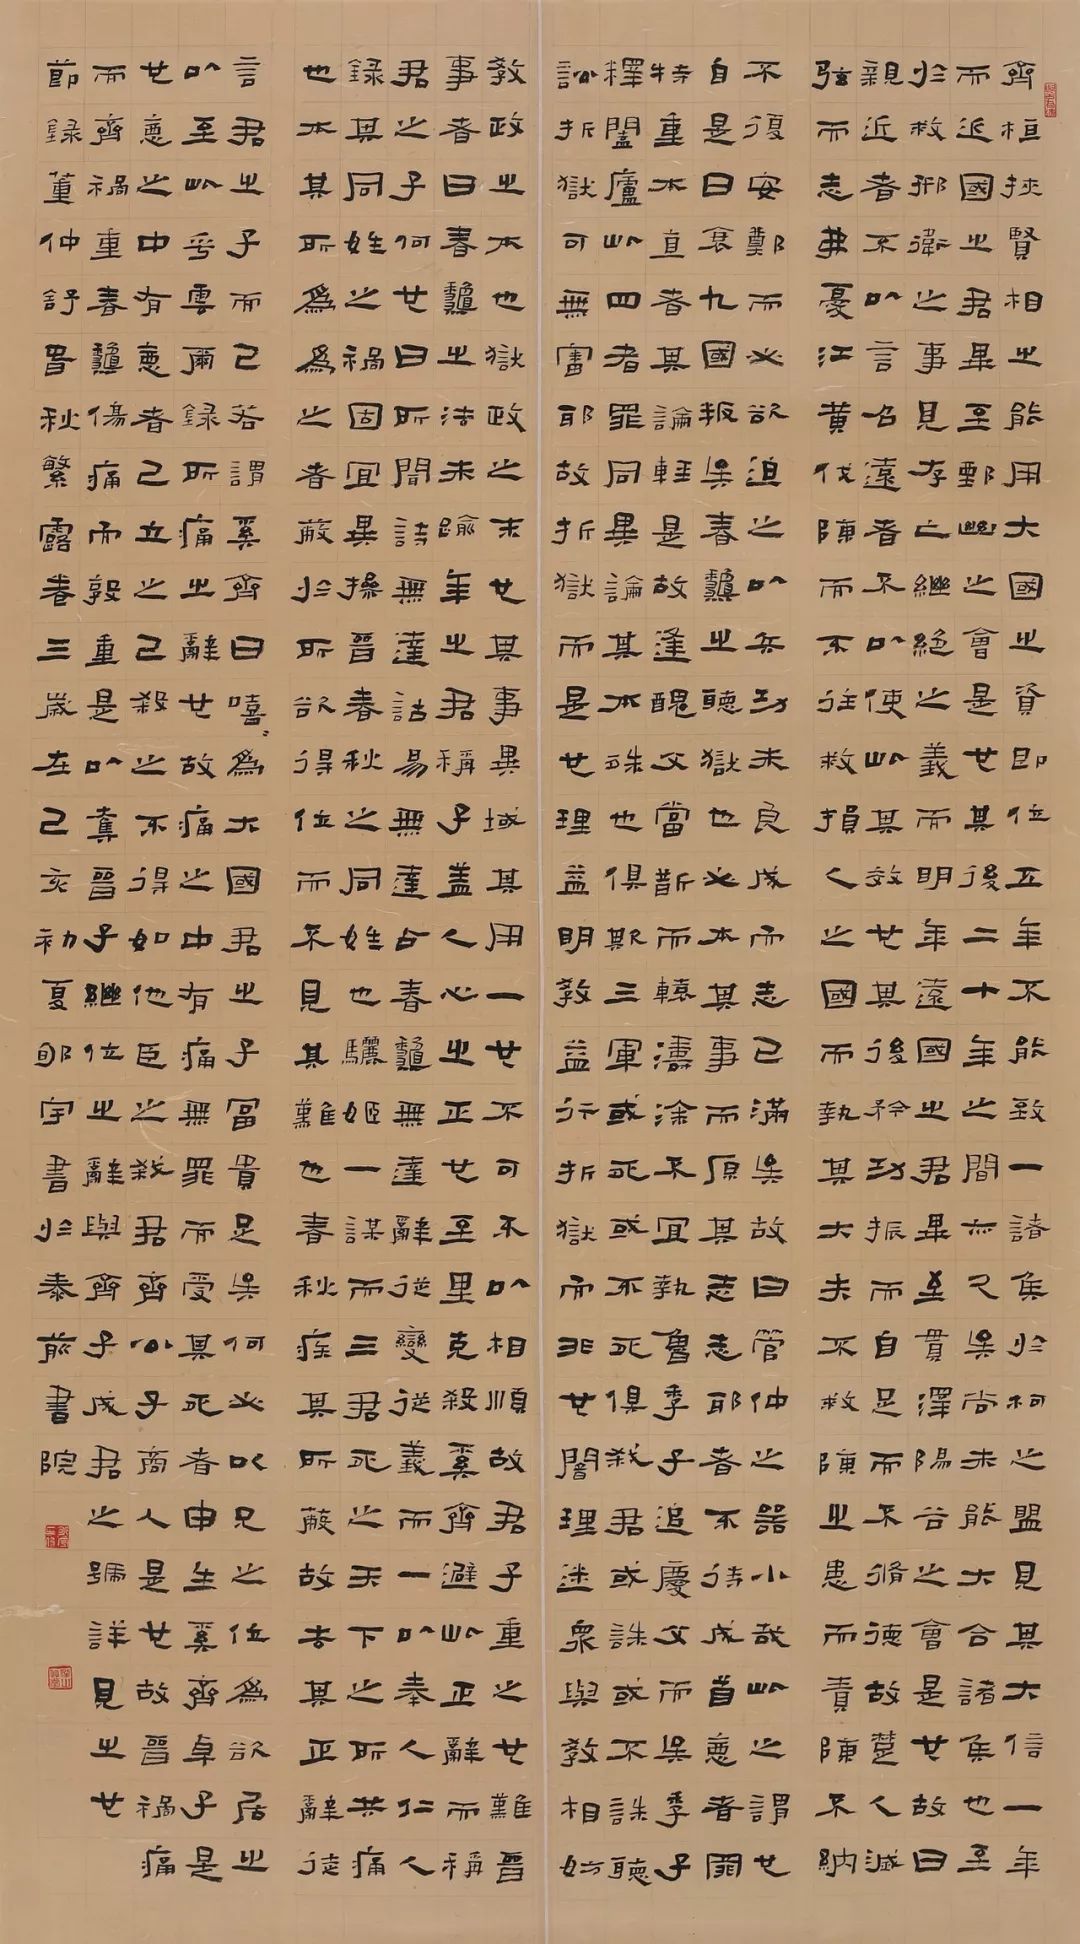 齊桓挾賢相之能用大國之資即位五年不能致一諸侯於柯之盟見其大信一年
而近國之君畢至鄄幽之會是也其後二十年之間亦久矣尚未能大合諸侯也至
於救邢衛之事見存亡繼絕之義而明年遠國之君畢至貫澤陽谷之會是也故曰
親近者不以言召遠者不以使此其效也其後矜功振而自足而不脩德故楚人滅
弦而志弗憂江黃伐陳而不往救損人之國而執其大夫不救陳之患而責陳不納
不復安鄭而必欲迫之以兵功未良成而志已滿矣故曰管仲之器小哉此之謂也
自是日衰九國叛矣春龝之聽獄也必本其事而原其志志耶者不待成首惡者罰
特重本直者其論輕是故逢醜父當斮而轅濤涂不宜執魯季子追慶父而吳季子
釋闔廬此四者罪同異論其本殊也俱欺三軍或死或不死俱弒君或誅或不誅聽
訟折獄可無審耶故折獄而是也理益明教益行折獄而非也闇理迷眾與教相妨
教政之本也獄政之末也其事異域其用一也不可不以相順故君子重之也難晉
事者曰春龝之法未踰年之君稱子蓋人心之正也至里克殺奚齊避此正辭而稱
君之子何也曰所聞詩無達詁易無達占春龝無達辭從變從義而一以奉人仁人
錄其同姓之禍固宜異操晉春秋之同姓也驪姬一謀而三君死之天下之所共痛
也本其所為為之者蔽於所欲得位而不見其難也春秋疾其所蔽故去其正辭徒
言君之子而已若謂奚齊曰嘻嘻為大國君之子富貴足矣何必以兄之位為欲居之
以至此乎雲爾錄所痛之辭也故痛之中有痛無罪而受其死者申生奚齊卓子是
也惡之中有惡者己立之己殺之不得如他臣之弒君齊公子商人是也故晉禍痛
而齊禍重春龝傷痛而敦重是以奪晉子繼位之辭與齊子成君之號詳見之也
節錄董仲舒旾秋繁露卷三歲在己亥初夏郇宇書於泰前書院